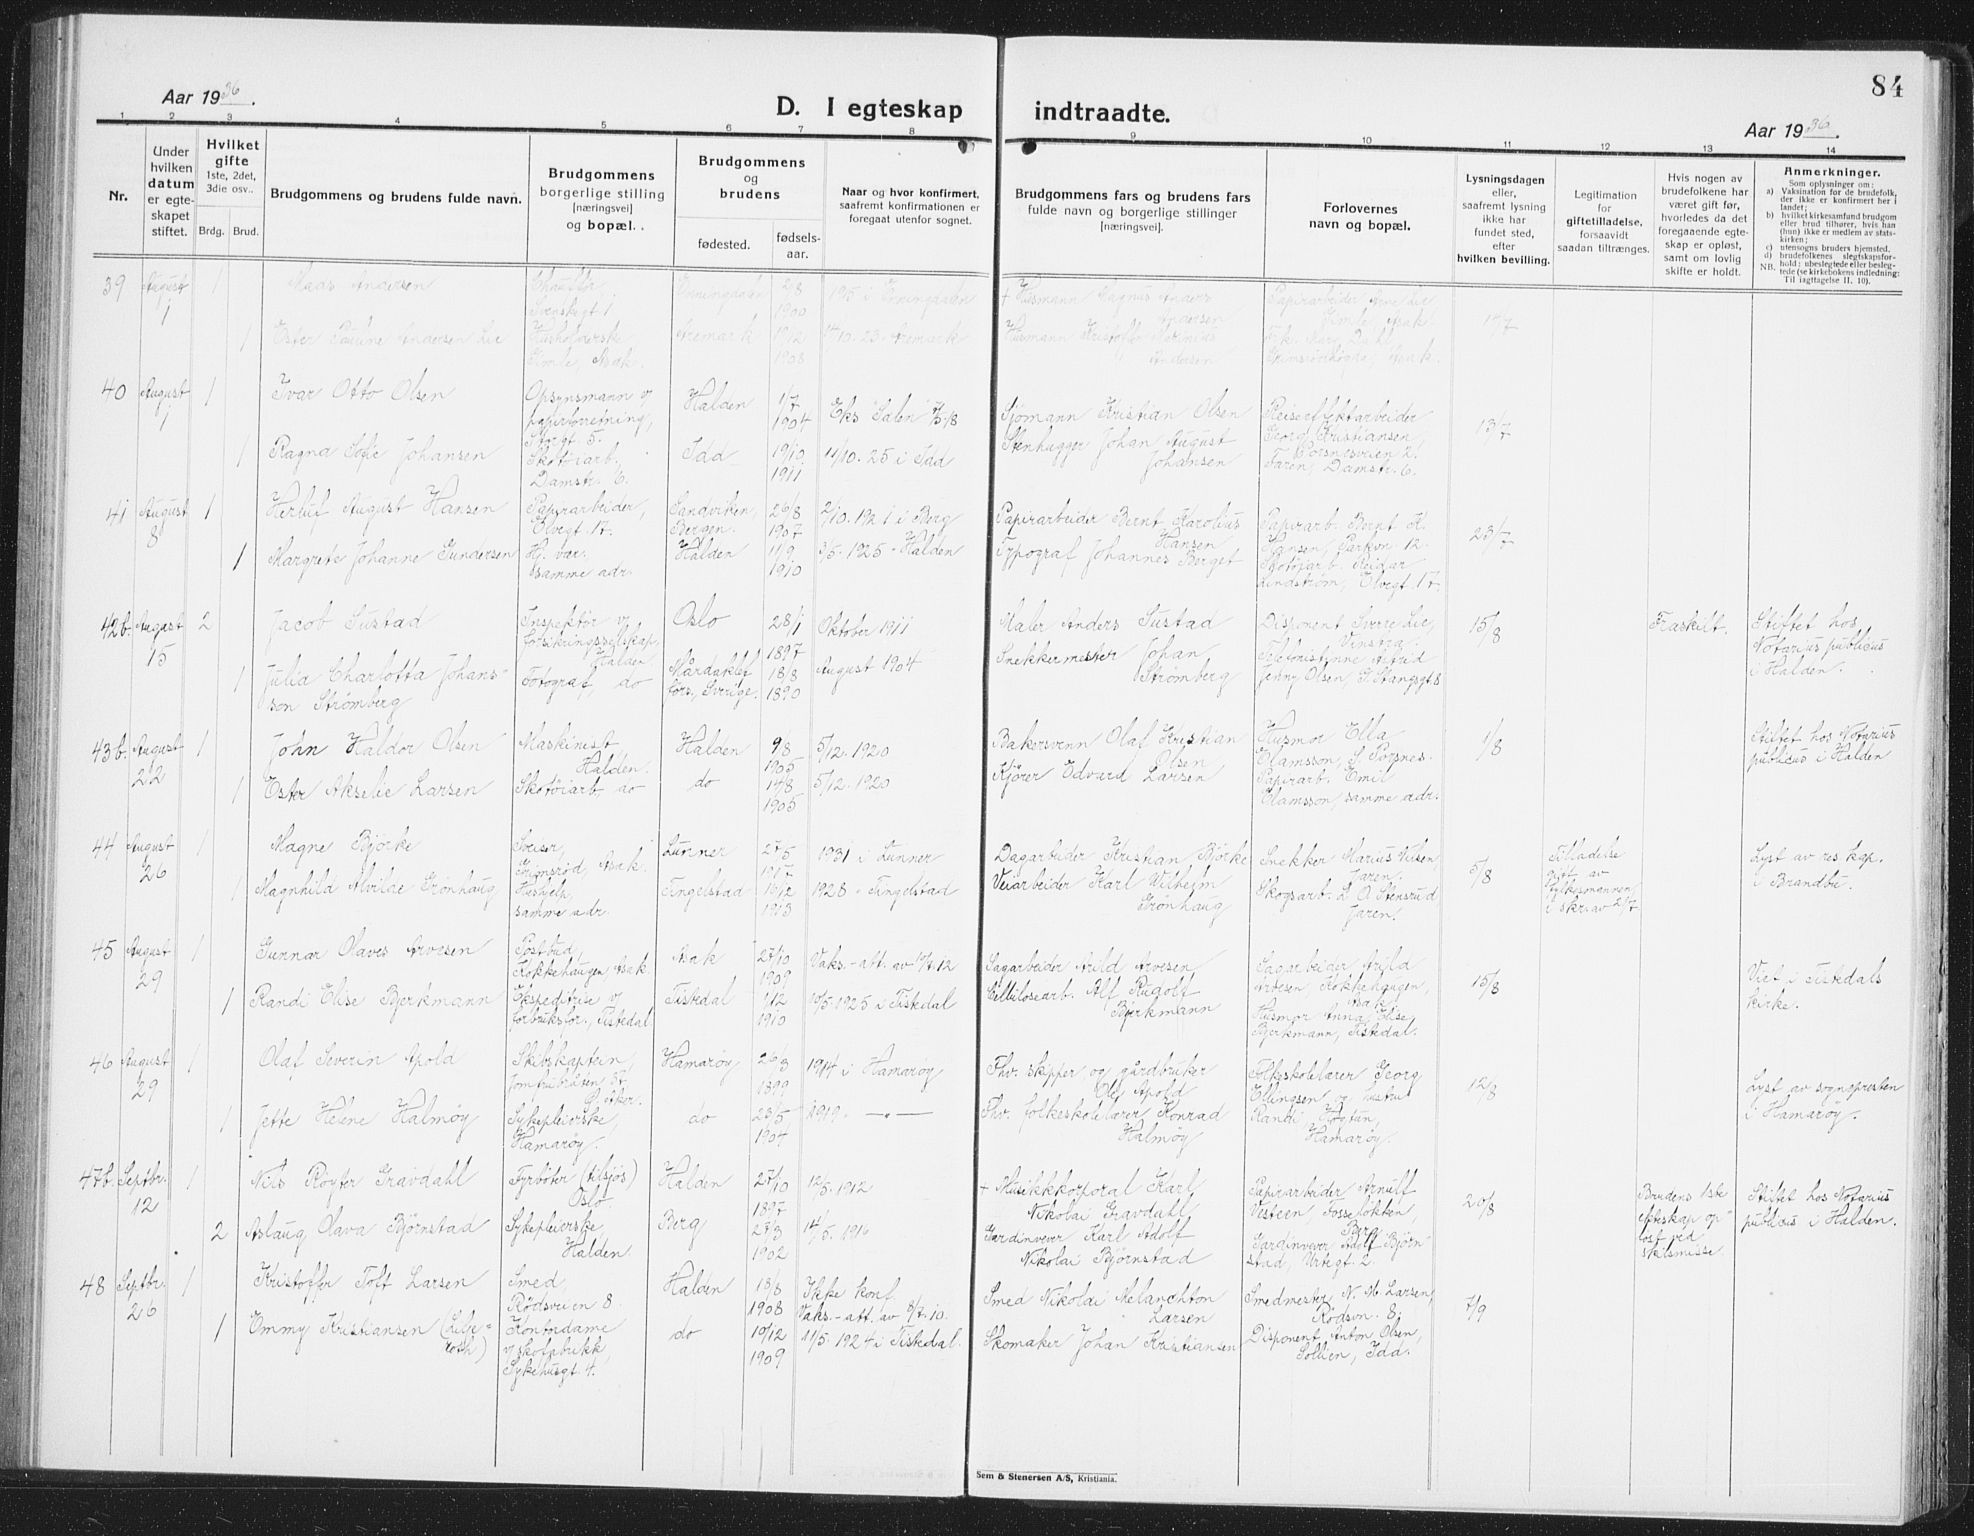 84
Aar 1936.
D. I egteskap indtraadte.
Aar 1936.
1 2 3 4 5 6 7 8 9 10 11 12 13 14
Nr.
Under hvilken datum er egteskapet stiftet.
Hvilket gifte 1ste, 2det, 3die osv..
Brdg. Brud.
Brudgommens og brudens fulde navn.
Brudgommens borgerlige stilling [næringsvei] og bopæl.
Brudgommens og brudens
fødested.
fødselsaar.
Naar og hvor konfirmert, saafremt konfirmationen er foregaat utenfor sognet.
Brudgommens fars og brudens fars fulde navn og borgerlige stillinger [næringsvei].
Forlovernes navn og bopæl.
Lysningsdagen eller, saafremt lysning ikke har fundet sted, efter hvilken bevilling.
Legitimation for giftetilladelse, forsaavidt saadan tiltrænges.
Hvis nogen av brudefolkene har været gift før, hvorledes da det foregaaende egteskap er opløst, samt om lovlig skifte er holdt.
Anmerkninger.
Som oplysninger om:
a) Vaksination for de brudefolk, der ikke er konfirmert her i landet;
b) hvilket kirkesamfund brudgom eller brud tilhører, hvis han (hun) ikke er medlem av statskirken;
c) utensogns bruders hjemsted.
d) brudefolkenes slegtskapsforhold; ubeslegtede eller beslegtede (se kirkebokens indledning:
NB. Til iagttagelse II. 10).
39 August 1
1 Andersen
1900
1 Ester Pauline Andersen Lie
Aremark
1908
Aremark
Husmann Kristoffer Marinius Andersen
17/7
40 August 1
1 Ivar Otto Olsen
Opsynsmann v papirforretning, Storgt. 5.
Halden
1/7 1904
Sjømann Kristian Olsen
Georg Kristiansen, Porsnesveien 2.
13/7
1 Ragna Sofie Johansen
Skotøiarb. Damstr. 6.
Idd
19/10 1911
11/10. 25 i Idd
Stenhugger Johan August Johansen
Faren, Damstr. 6.
41 August 8
1 Herluf August Hansen
Papirarbeider, Elvegt 17.
Sandviken, Bergen.
26/8 1907
2/10. 1921 i Berg
Papirarbeider Bernt Karolius Hansen
Papirarb. Bernt K. Hansen, Parkvn. 12.
23/7
1 Margrete Johanne Gundersen
H. vær. samme adr.
Halden
11/9 1910
3/5. 1925 - Halden
Typograf Johannes Berget
Skotøiarb. Reidar Lindstrøm, Elvegt. 17
42b. August 15
2 Jacob Sustad
Inspektør v forsikringsselskap, Halden
Oslo
28/1 1897
Oktober 1911
Maler Anders Sustad
Disponent Sverre Lie, Vinstra.
15/8
Fraskilt.
Stiftet hos Notarius publicus i Halden.
1 Julia Charlotta Johansson Strømberg
Fotograf, do
Mårdaklef førs, Sverige.
18/8 1890
August 1904
Snekkermester Johan Strømberg
Telefonistinne Astrid Jenny Olsen, S. Stangsgt 8
43b. August 22
1 John Haldor Olsen
Maskinist Halden.
Halden
9/8 1905
5/12. 1920
Bakersvenn Olaf Kristian Olsen
Husmor Ella Olamsson, S. Porsnes.
1/8
Stiftet hos Notarius publicus i Halden
1 Ester Akselie Larsen
Skotøiarb. do
do
14/8 1905
5/12. 1920
Kjører Edvard Larsen
Papirarb. Emil Olamsson, samme adr.
44 August 26
1 Magne Bjørke
Sveiser, Grimsrød, Asak.
Lunner
27/5 1917
1931 i Lunner
Dagarbeider Kristian Bjørke
Snekker Marius Nilsen, Jaren.
5/8
Tilladelse git av fylkesmannen i skr. av 2/7
Lyst av res. kap. i Brandbu.
1 Magnhild Alvilde Grønhaug
Hushjelp, samme adr.
Tingelstad
16/12 1913
1928 - Tingelstad
Veiarbeider Karl Wilhelm Grønhaug
Skogsarb. L. O. Stensrud Jaren.
45 August 29
1 Gunnar Olaves Arvesen
Postbud, Kokkehaugen, Asak.
Asak
27/10 1909
Vaks.-att. av 17/7. 12
Sagarbeider Arild Arvesen
Sagarbeider Arild Arvesen, Kokkehaugen, Asak
15/8
Viet i Tistedals kirke.
1 Randi Elise Bjerkmann
Ekspeditrise v forbruksfor., Tistedal
Tistedal
1/12 1910
10/5. 1925 i Tistedal
Cellulosearb. Alf Rudolf Bjerkmann
Husmor Anna Elise Bjerkmann, Tistedal.
46 August 29
1 Olaf Severin Apold
Skibskaptein, Jomfrubråten 57 Ø. Aker.
Hamarøy
26/3 1899
1914 i Hamarøy
Fhv. skipper og gårdbruker Ole Apold
Folkeskolelærer Georg Ellingsen og hustru Randi Høgtun, Hamarøy.
12/8
Lyst av sognepresten i Hamarøy.
1 Jette Helene Halmøy
Sykepleierske, Hamarøy.
do
23/5 1904
1919. — " —
Fhv. folkeskolelærer Konrad Halmøy
47b. Septbr. 12
1 Nils Røyter Gravdahl
Fyrbøter (tilsjøs) Oslo.
Halden
27/10 1897
12/5. 1912
+ Musikkkorporal Karl Nikolai Gravdahl,
Papirarbeider Arnulf Vesteen, Fosseløkken, Berg.
20/8
Brudens 1ste ekteskap opløst ved skilsmisse
Stiftet hos Notarius publicus i Halden.
2 Aslaug Olava Bjørnstad
Sykepleierske Halden.
Berg
23/3 1902
14/5. 1916
Gardinvever Karl Adolf Nikolai Bjørnstad
Gardinvever Adolf Bjørnstad, Urtegt. 2.
48 Septbr. 26
1 Kristoffer Toft Larsen
Smed, Rødsveien 8.
Halden
18/8 1908
Ikke konf. Vaks.-att. av 8/7. 10.
Smed Nikolai Melanchton Larsen
Smedmester N. M. Larsen, Rødsvn. 8.
7/9
1 Emmy Kristiansen (Liljeroth)
Kontordame v skofabrikk, Sykehusgt. 4.
do
10/12 1909
11/5. 1924 i Tistedal.
Skomaker Johan Kristiansen
Disponent Anton Olsen, Sollien, Idd.
Sem & Stenersen A/S, Kristiania.